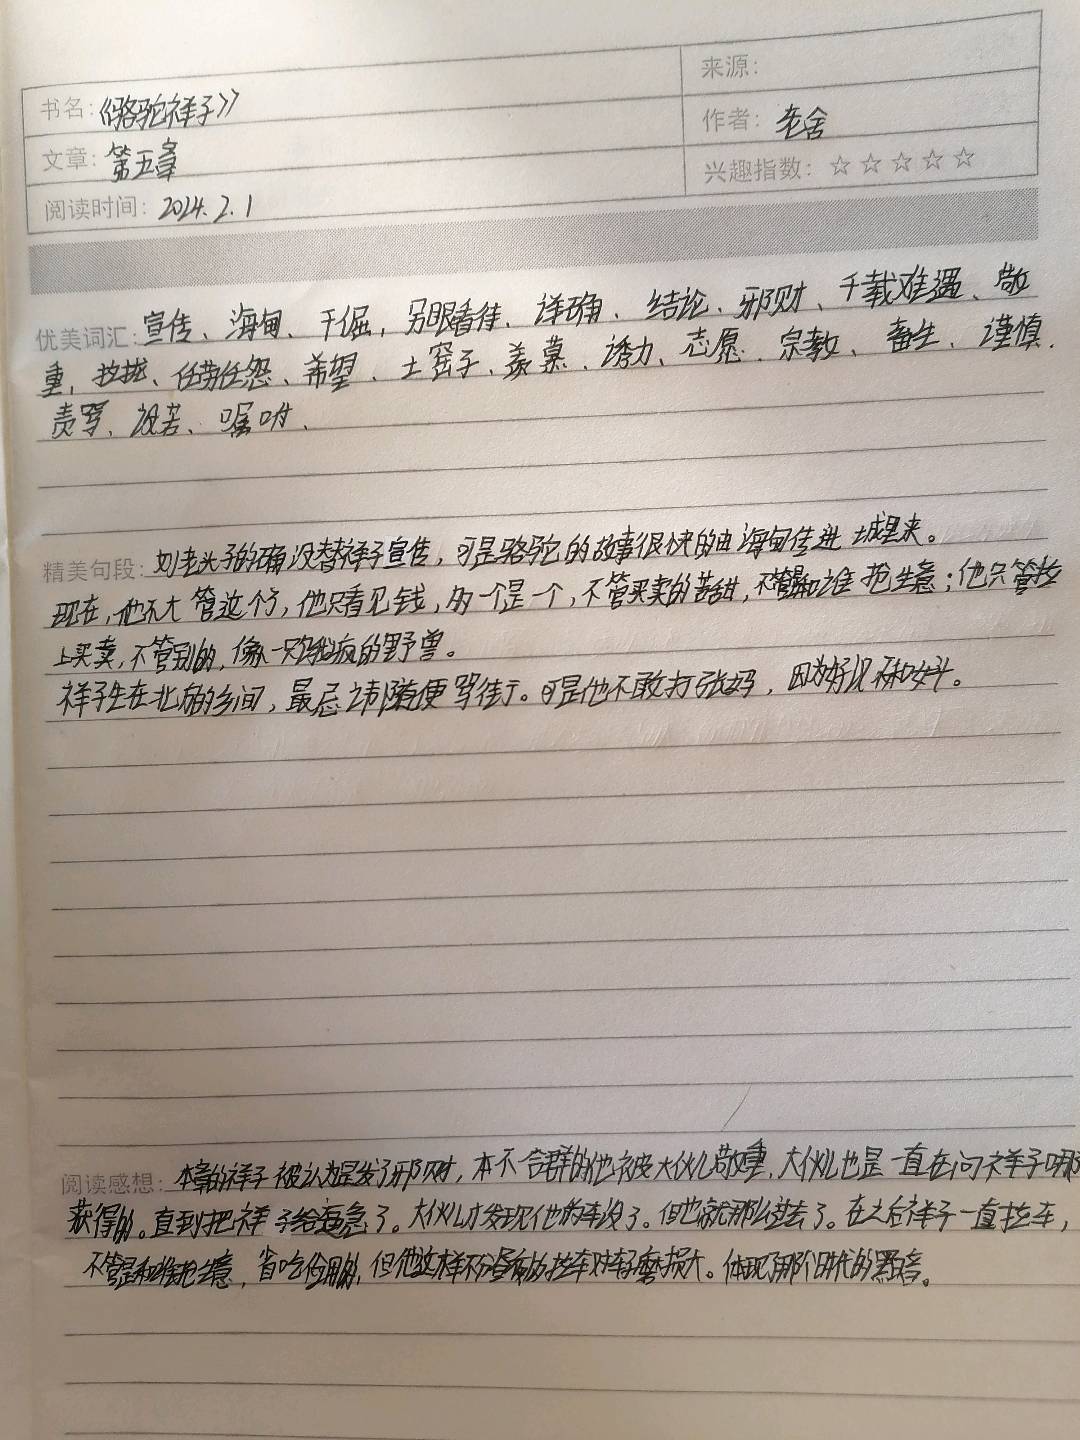 书名：《骆驼祥子》
来源：
文章：第五章
作者：老舍
阅读时间：2024.2.1
兴趣指数：☆☆☆☆☆
优美词汇：宣传、海甸、干倔，另眼看待、详确、结论、邪财、千载难遇、敬
重，拉拢、任劳任怨、希望、土窑子、羡慕、诱力、志愿、宗教、畜生、谨慎、
责骂、设若、嘱咐、
精美句段：刘老头子的确没替祥子宣传，可是骆驼的故事很快的由海甸传进城里来。
现在，他不大管这个了，他只看见钱，多一个是一个，不管买卖的苦甜，不管是和谁抢生意；他只管拉
上买卖，不管别的，像一只饿疯的野兽。
祥子生在北方的乡间，最忌讳随便骂街。可是他不敢打张妈，因为好汉不和女斗。
阅读感想：本章的祥子被认为是发了邪财，本不合群的他被大伙儿敬重，大伙儿也是一直在问祥子哪
获得的。直到把祥子给逼急了。大伙儿才发现他的车没了。但也就那么过去了。在之后祥子一直拉车，
不管是和谁抢生意，省吃俭用的，但他这样不分昼夜的拉车对车子磨损大。体现了那个时代的黑暗。